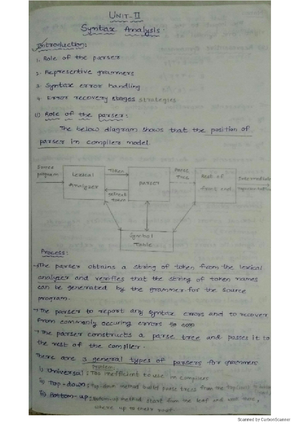 UNIT-II
Syntax Analysis
Introduction:
1. Role of the parser
2. Representive grammers
3. Syntax error handling
4. Error recovery stages strategies
1) Role of the parser:
The below diagram shows that the position of
parser in compiler model.
Source
program
Lexical
Analyzer
Token
parser
Parse
Tree
Rest of
Front end
Intermediate
Symbol
Table
Process:
The parser obtains a string of token from the lexical
analyzer and verifies that the string of token names
can be generated by the grammer for the source
program.
The parser to report any syntax errors and to recover
from commonly occuring errors to
The parser constructs a parse tree and passes it to
the rest of the compiler.
There are 3 general types of parsers for grammers
1) Universal: Too inefficient to use in compilers
2) Top-down:
3) Bottom-up:
Scanned by CamScanner